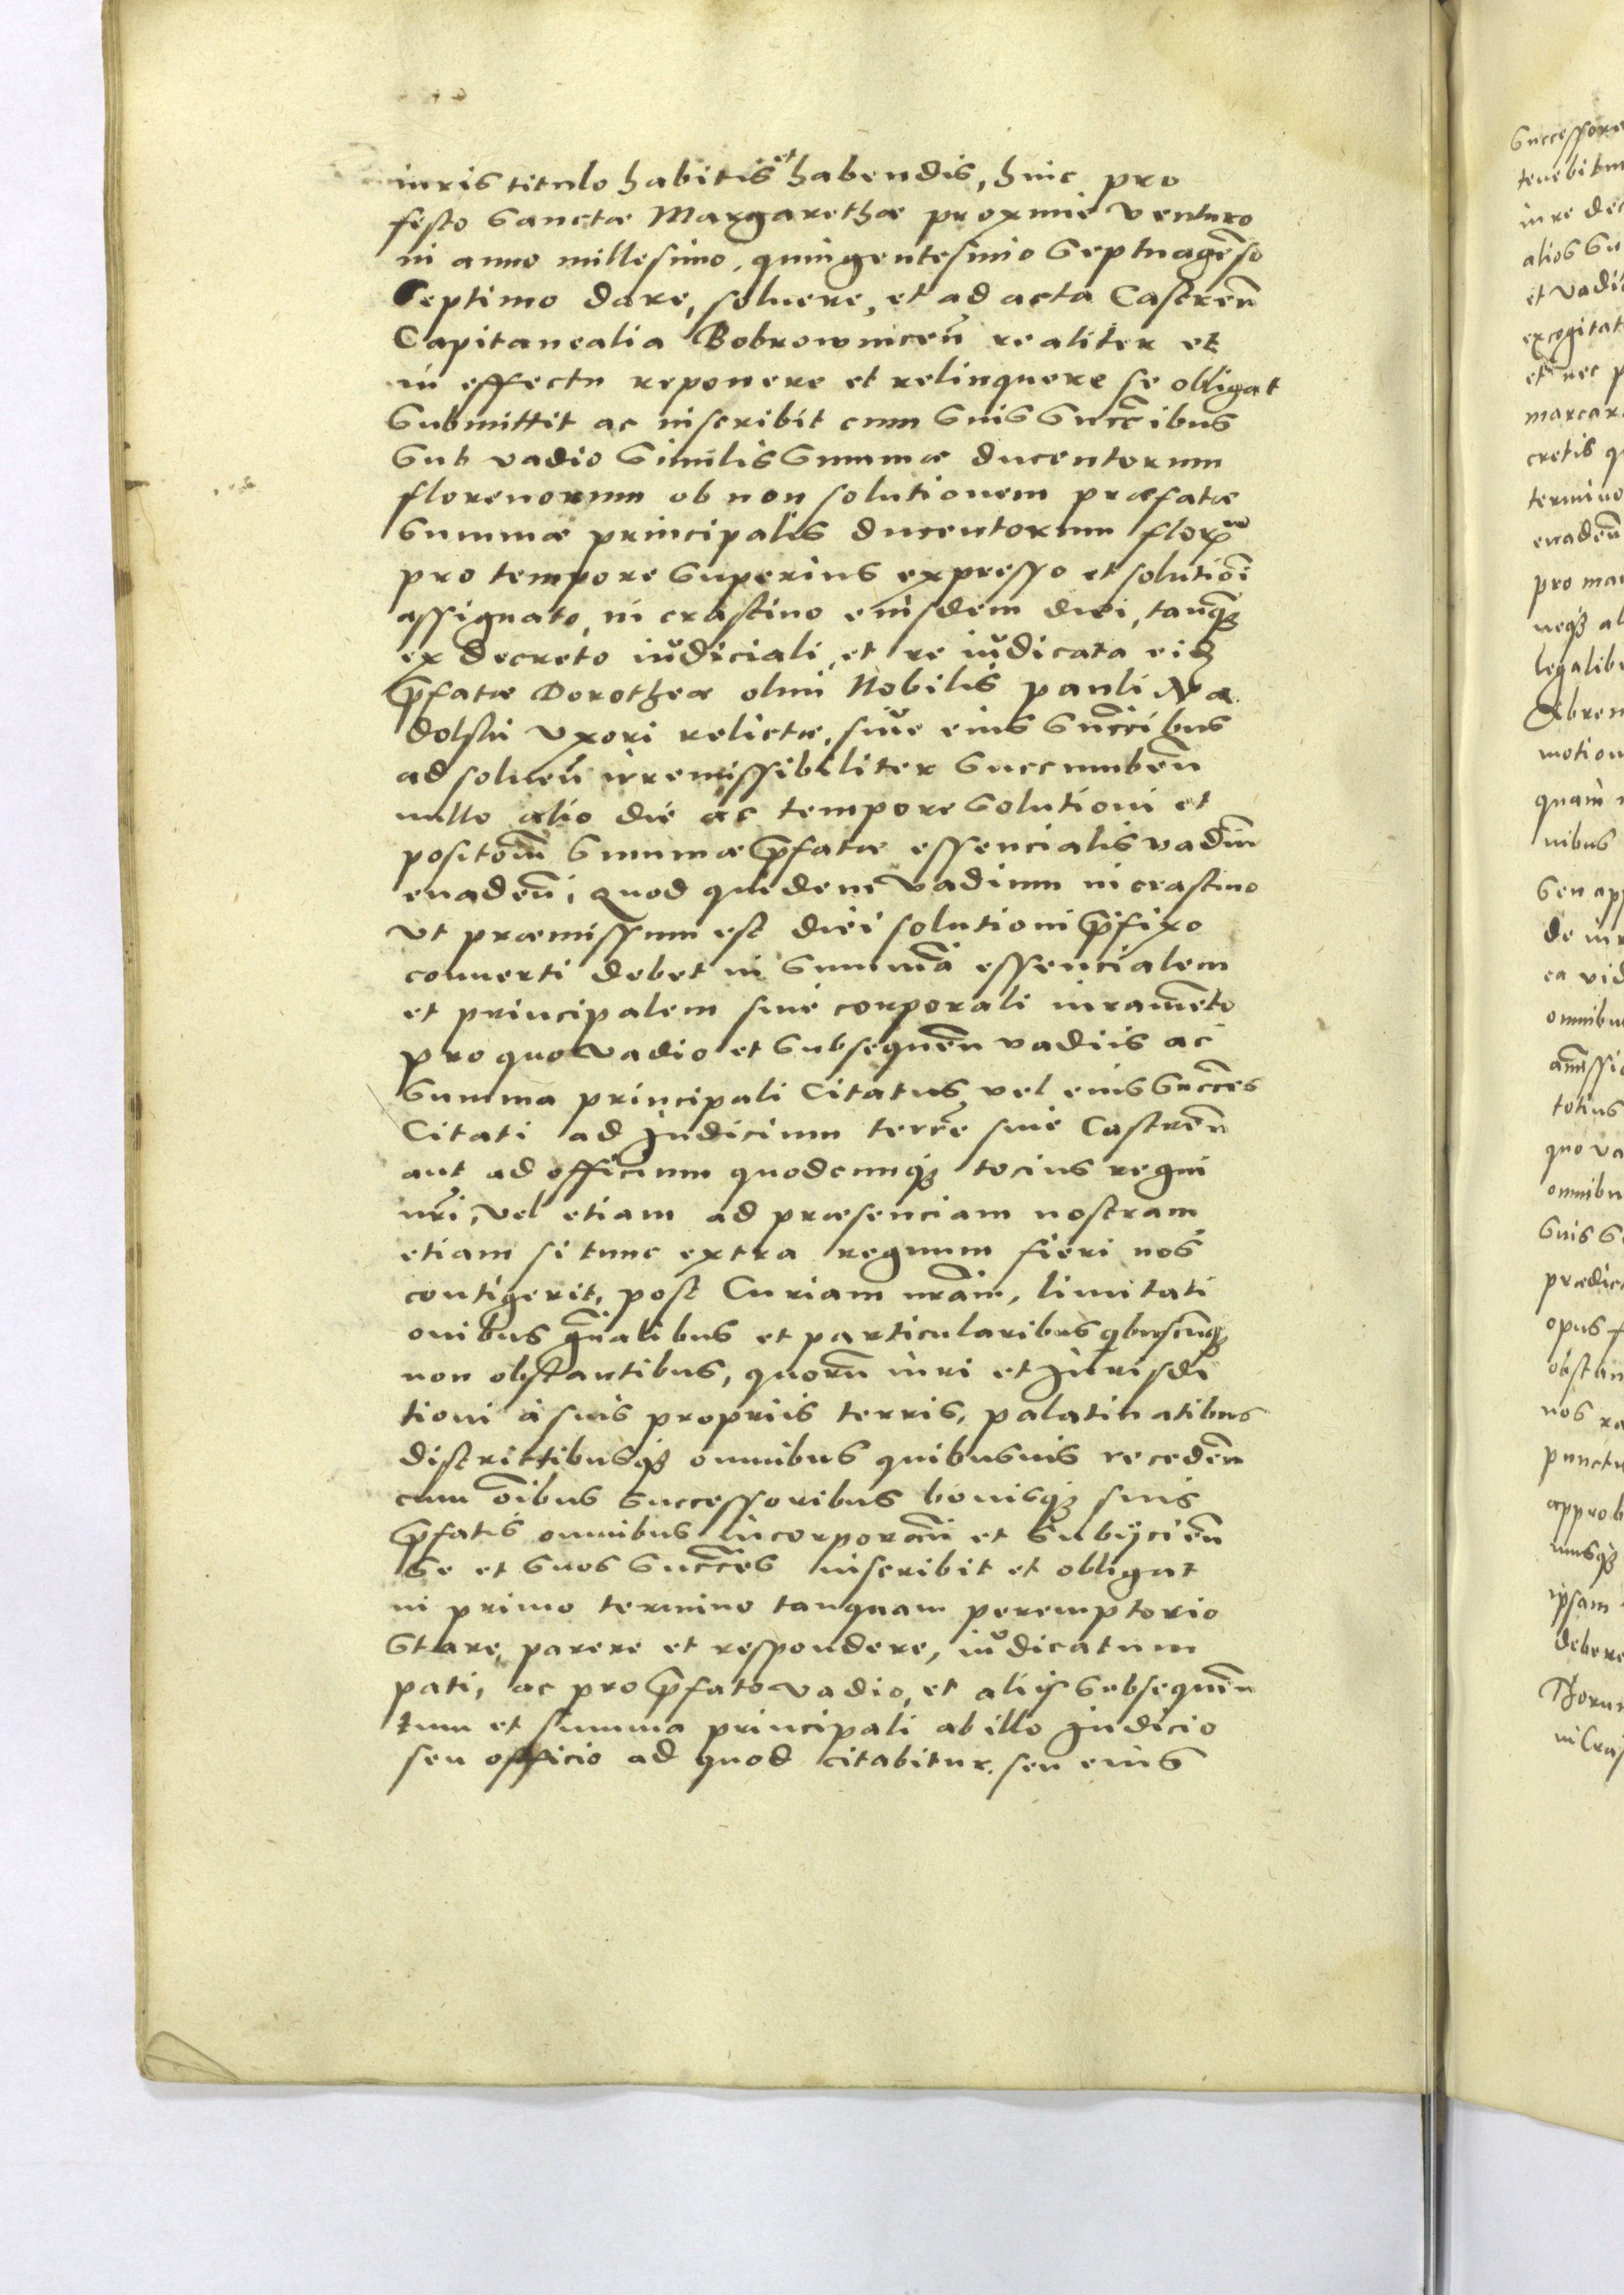 iuris titulo habitis et habendis, hinc pro
festo Sanctæ Margarethæ proxime venturo
in anno millesimo, quingentesimo Septuagēso
Septimo dare, soluere, et ad acta Castreñ
Capitanealia Bobrowniceñ realiter et
in effectu reponere et relinquere se obligat
Submittit ac inscribit cum Suis Succc̄ibus
Sub vadio Similis Summæ ducentorum
florenorum ob non solutionem præfatæ
Summæ principalis ducentorum flor
pro tempore Superius expresso et solutiōi
assignato, in crastino eiusdem diei, tanq̄ȝ
ex decreto iudiciali, et re iudicata eidȝ
p̄fatæ Dorotheæ olim Nobilis Pauli Na
dolski Vxori relictæ, siue eius Succc̄ibus
ad solueñ irremissibiliter Succumbeñ
nullo alio die ac tempore Solutioni et
positōni Summæ p̄fatæ essencialis vadiū
euadeñ, Quod quidem Vadium in crastino
vt præmissum est diei solutioni p̄fixo
conuerti debet in Summā essencialem
et principalem siné corporali iuramēto
pro quo vadio et Subsequeñ vadiis ac
Summa principali Citatus, vel eius Succc̄es
Citati ad Iudicium terr̄e siue Castreñ
aut ad officium quodcunqȝ tocius regni
nr̄i, vel etiam ad præsenciam nostram
etiam si tunc extra regnum fieri nos
contigerit, post Curiam nr̄am, limitati
onibus gn̄alibus et particularibus qbuscunqȝ
non obstantibus, quorū iuri et Iurisdi
tioni à suis propriis terris, palatinatibus
districtibusqȝ omnibus quibusuis recedeñ
cum oībus successoribus bonisqȝ suis
p̄fatis omnibus incorporañ et Subijcieñ
Se et Suos Succc̄es inscribit et obligat
in primo termino tanquam peremptorio
Stare, parere et respondere, iudicatum
pati, ac pro p̄fato vadio, et aliis Subsequeñ
tum et summa principali ab illo Iudicio
seu officio ad quod citabitur, seu eius